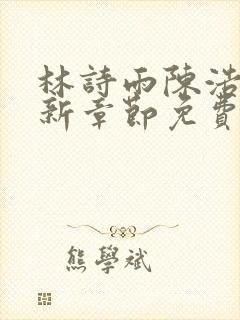 林詩雨陳浩
新章節免費
熊學斌